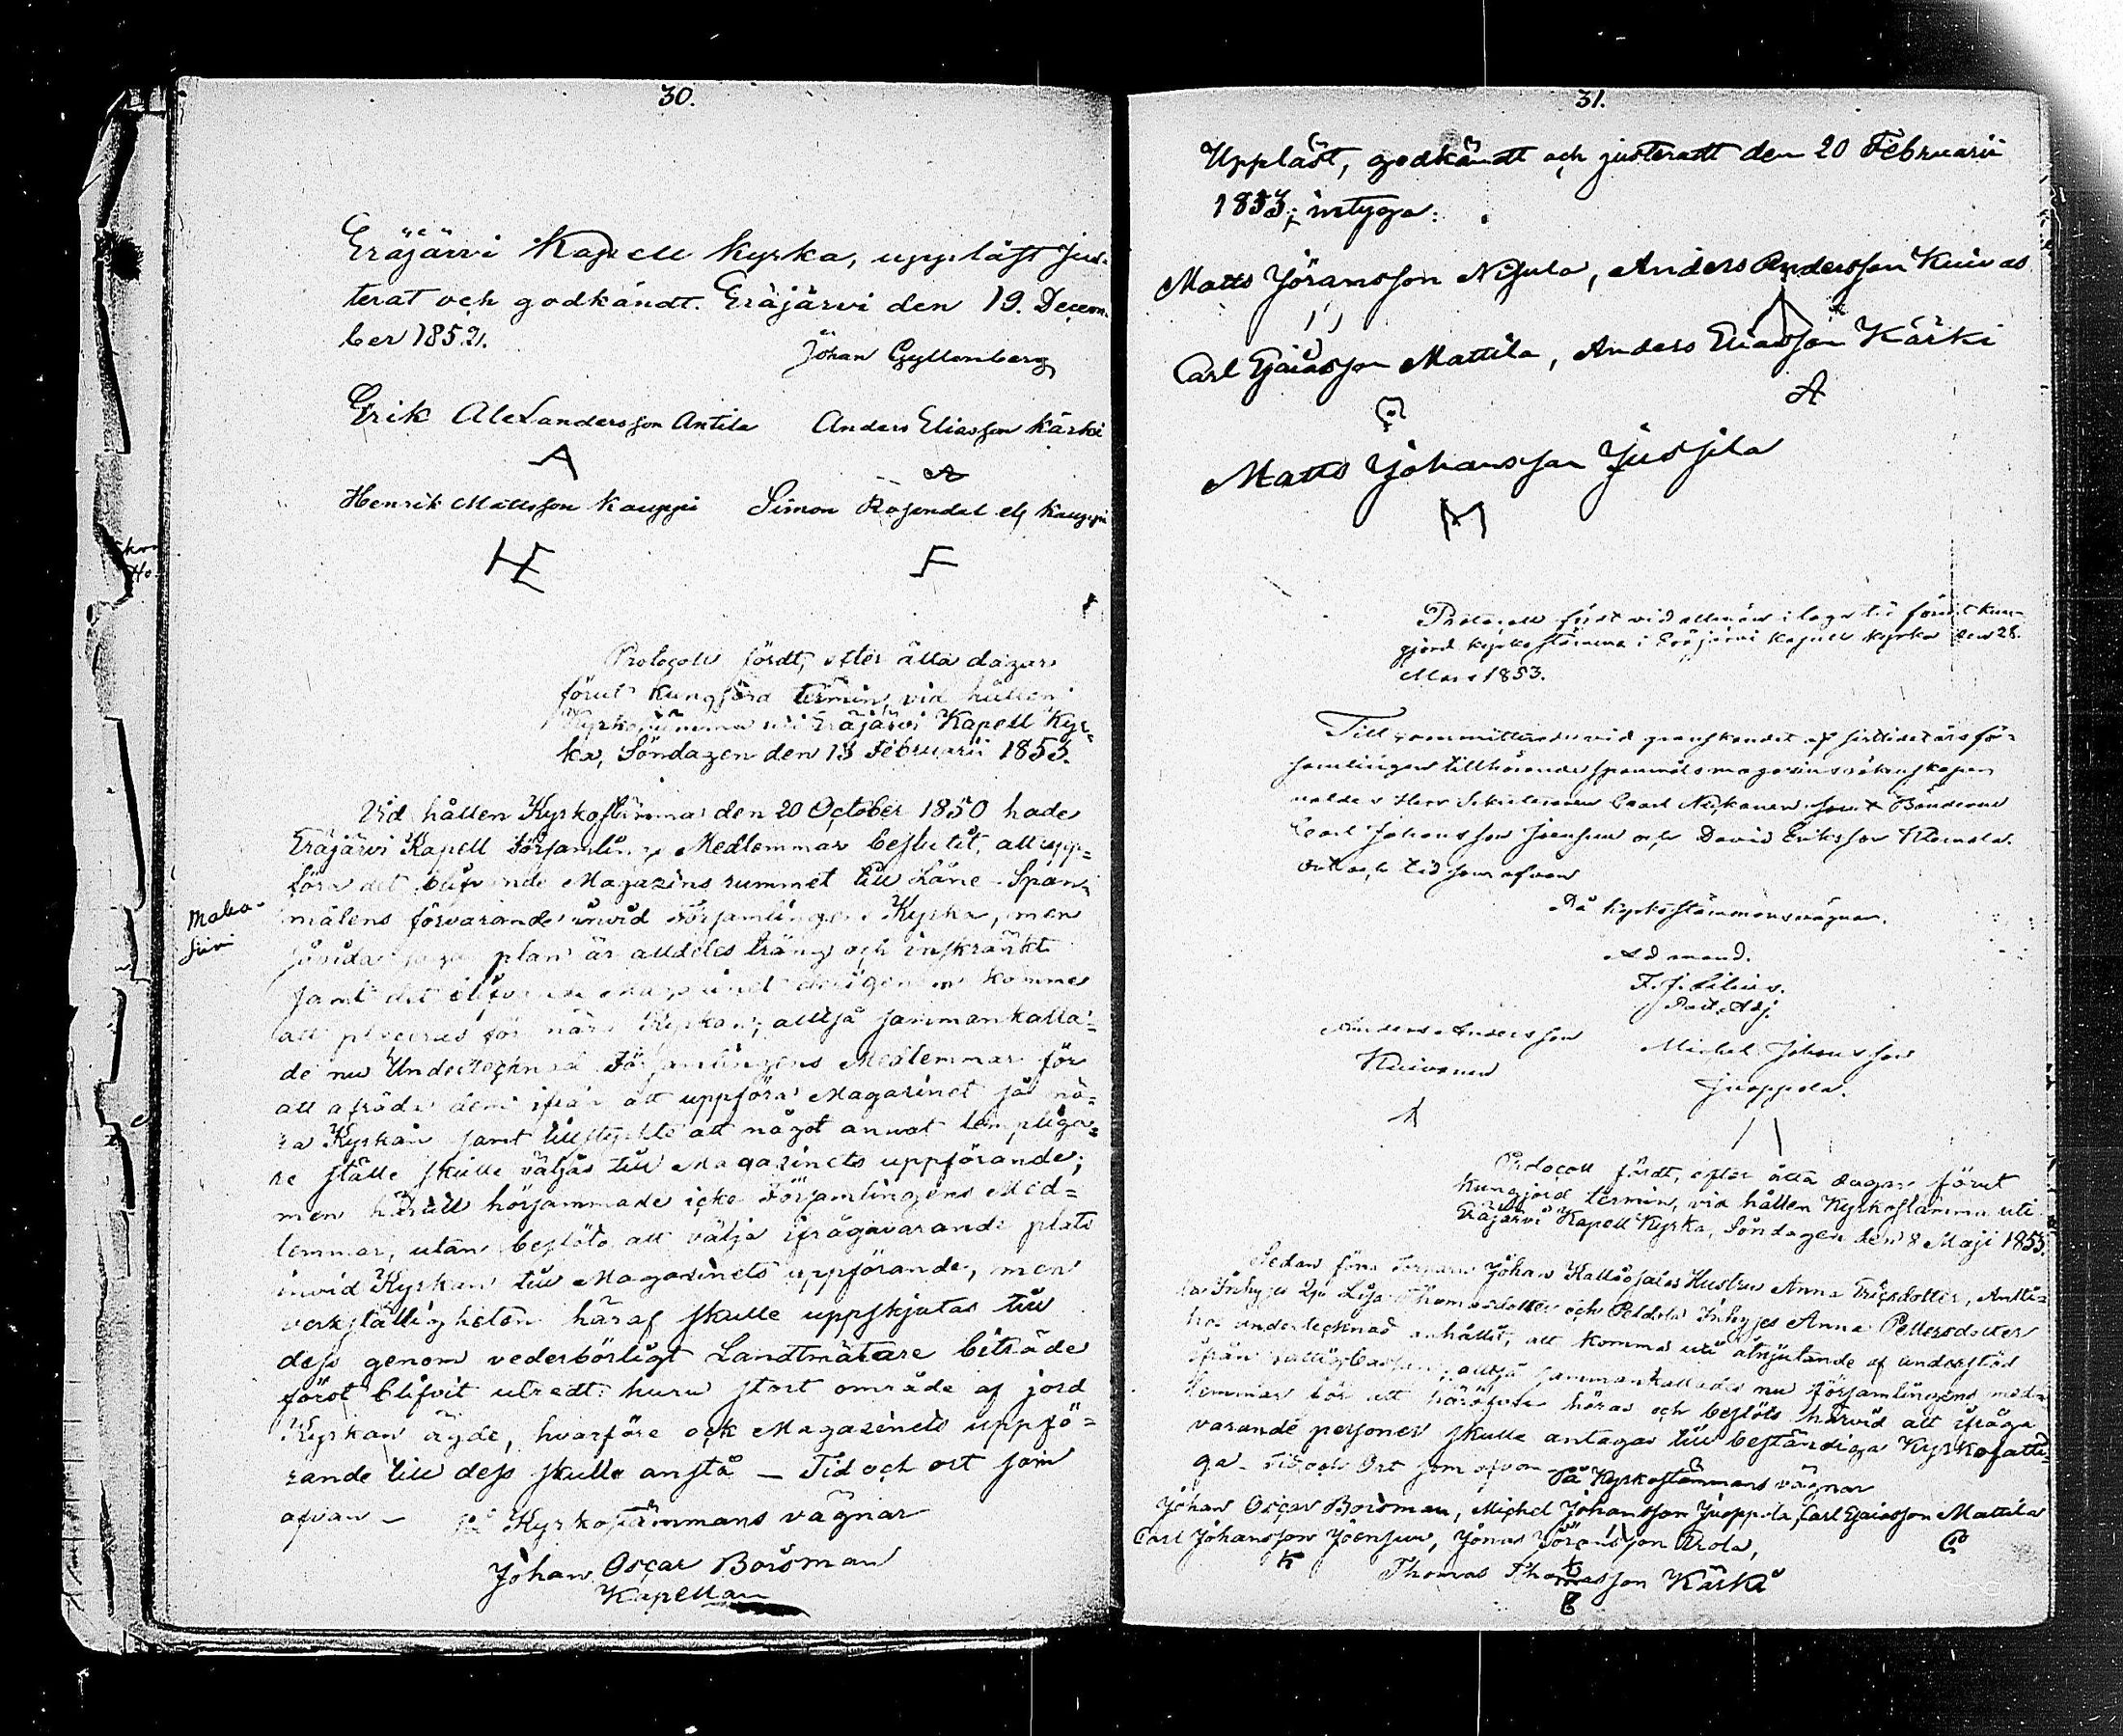 30.
Eräjärvi Kapell Kyrka, uppläst jus-
terat och godkändt. Eräjärvi den 19. Decem-
ber 1852.
Johan Gyllenberg
Erik Alexandersson Antila Anders Eliasson Kärki
A A
Henrik Mattsson Kauppi Simon Rosendal Kauppi
HE F
Protocoll fördt, efter åtta dagar
förut kungjord termin, vid hållen
Kyrkostämma uti Eräjärvi Kapell Kyr-
ka, Söndagen den 13 Februarii 1853.
Vid hållen Kyrkostämma den 20 October 1850 hade
Eräjärvi Kapell Församlings Medlemmar beslutit, att upp-
föra det blifvande Magazins rummet till Låne-Span-
målens förvarande invid Församlingens Kyrka, men
Maka-
siivi
plan är alldeles trång och inskränkt
samt det blifvande Magazinet derigenom kommer
att placeras för nära Kyrkan; alltså sammankalla-
de nu Undertecknad Församlingens Medlemmar för
att afråda dem ifrån att uppföra Magazinet så nä-
ra Kyrkan samt tillstyrkte att något annat lämpliga-
re ställe skulle väljas till Magazinets uppförande;
men härtill hörsammade icke Församlingens Med-
lemmar, utan beslöto att välja ifrågavarande plats
invid Kyrkan till Magazinets uppförande, men
verkställigheten häraf skulle uppskjutas till
dess genom vederbörligt Landtmätare biträde
först blifvit utredt huru stort område af jord
Kyrkan ägde, hvarföre ock Magazinets uppfö-
rande till dess skulle anstå – Tid och ort som
ofvan – På Kyrkostämmans vägnar
Johan Oscar Borsman
Kapellan
31.
Uppläst, godkändt och justeradt den 20 Februarii
1853; intyga:
Matts Jöransson Nisula, Anders Andersson Kuivas
Carl Esaiasson Mattila, Anders Eliasson Kärki
A
Matts Johansson Jussila
M
Protocoll fördt vid allmän i laga tid förut kun-
gjord kyrkostämma i Eräjärvi Kapell kyrka den 28.
Mars 1853.
Till committerade vid granskandet af sistlidet års för-
samlingen tillhörande spanmåls magasins räkenskaper
valdes Herr Carl Nykänen samt Bönderne
Carl Johansson Joensuu och David Eriksson
Ort och tid som ofvan
På kyrkostämmans vägnar.
Ad mand.
Past. Adj.
Anders Andersson Michel Johansson
Kuivanen Juoppola.
Protocoll fördt, efter åtta dagar förut
kungjord termin, vid hållen Kyrkostämma uti
Eräjärvi Kapell Kyrka, Söndagen den 8 Maji 1853.
Sedan Johan Hustru Anna Ericsdotter, Antti-
las Inhyses Lisa Thomasdotter och Peldola Inhyses Anna Pettersdotter
hos undertecknad anhållit, att komma uti åtnjutande af understöd
ifrån fattigkassan, alltså sammankallades nu församlingens med-
lemmar för att häröfver höras och beslöts härvid att ifråga
varande personer skulle antagas till beständiga Kyrkofatti-
ga. Tid och Ort som ofvan På Kyrkostämmans vägnar
Johan Oscar Borsman, Michel Johansson Juoppola, Carl Esaiasson Mattila
Carl Johansson Joensuu, Jonas Jöransson Arola,
K Thomas Thomasson Kärki